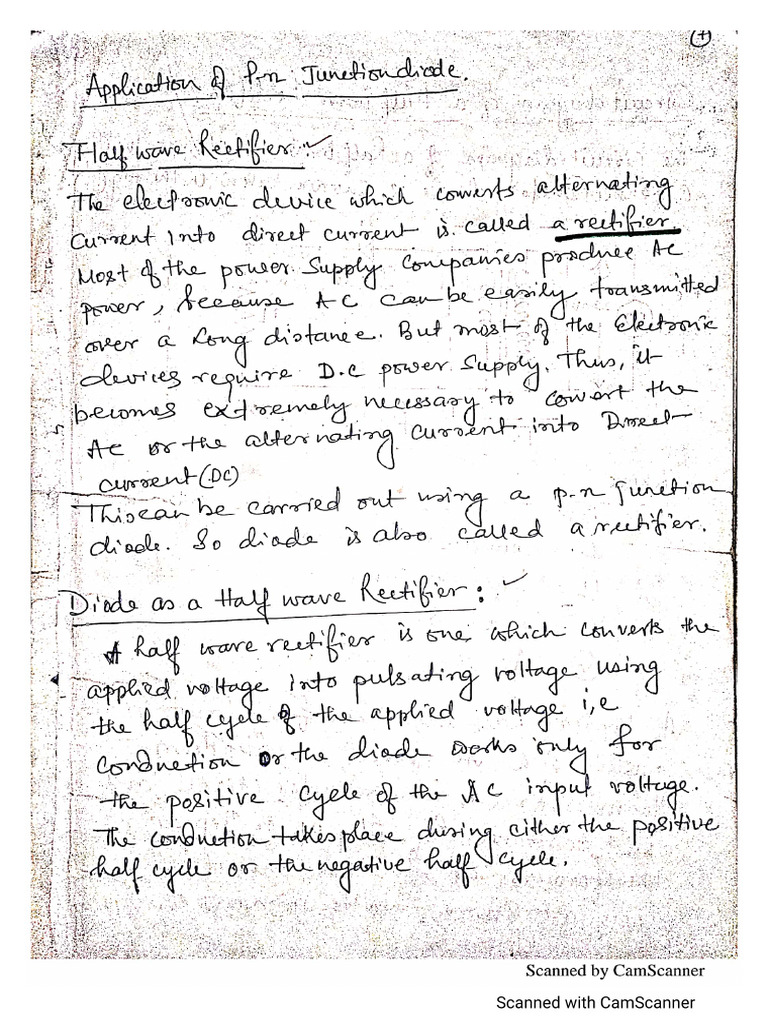 (+)
Application of P-n Junctiondiode.
Half wave Rectifier :-
The electronic device which converts alternating
Current Into direct current is called a rectifier.
Most of the power Supply Companies produce AC
power, because AC can be easily transmitted
over a Long distance. But most of the Electronic
devices require D.C power Supply. Thus, it
becomes extremely necessary to convert the
AC or the alternating Current into Direct
current (DC)
This can be carried out using a p-n Junction
diode. So diode is also called a rectifier.
Diode as a Half wave Rectifier :
A half wave rectifier is one which converts the
applied voltage into pulsating voltage using
the half cycle of the applied voltage i,e
Conduction or the diode works only for
the positive Cycle of the AC input voltage.
The conduction takes place during either the positive
half cycle or the negative half cycle.
Scanned by CamScanner
Scanned with CamScanner